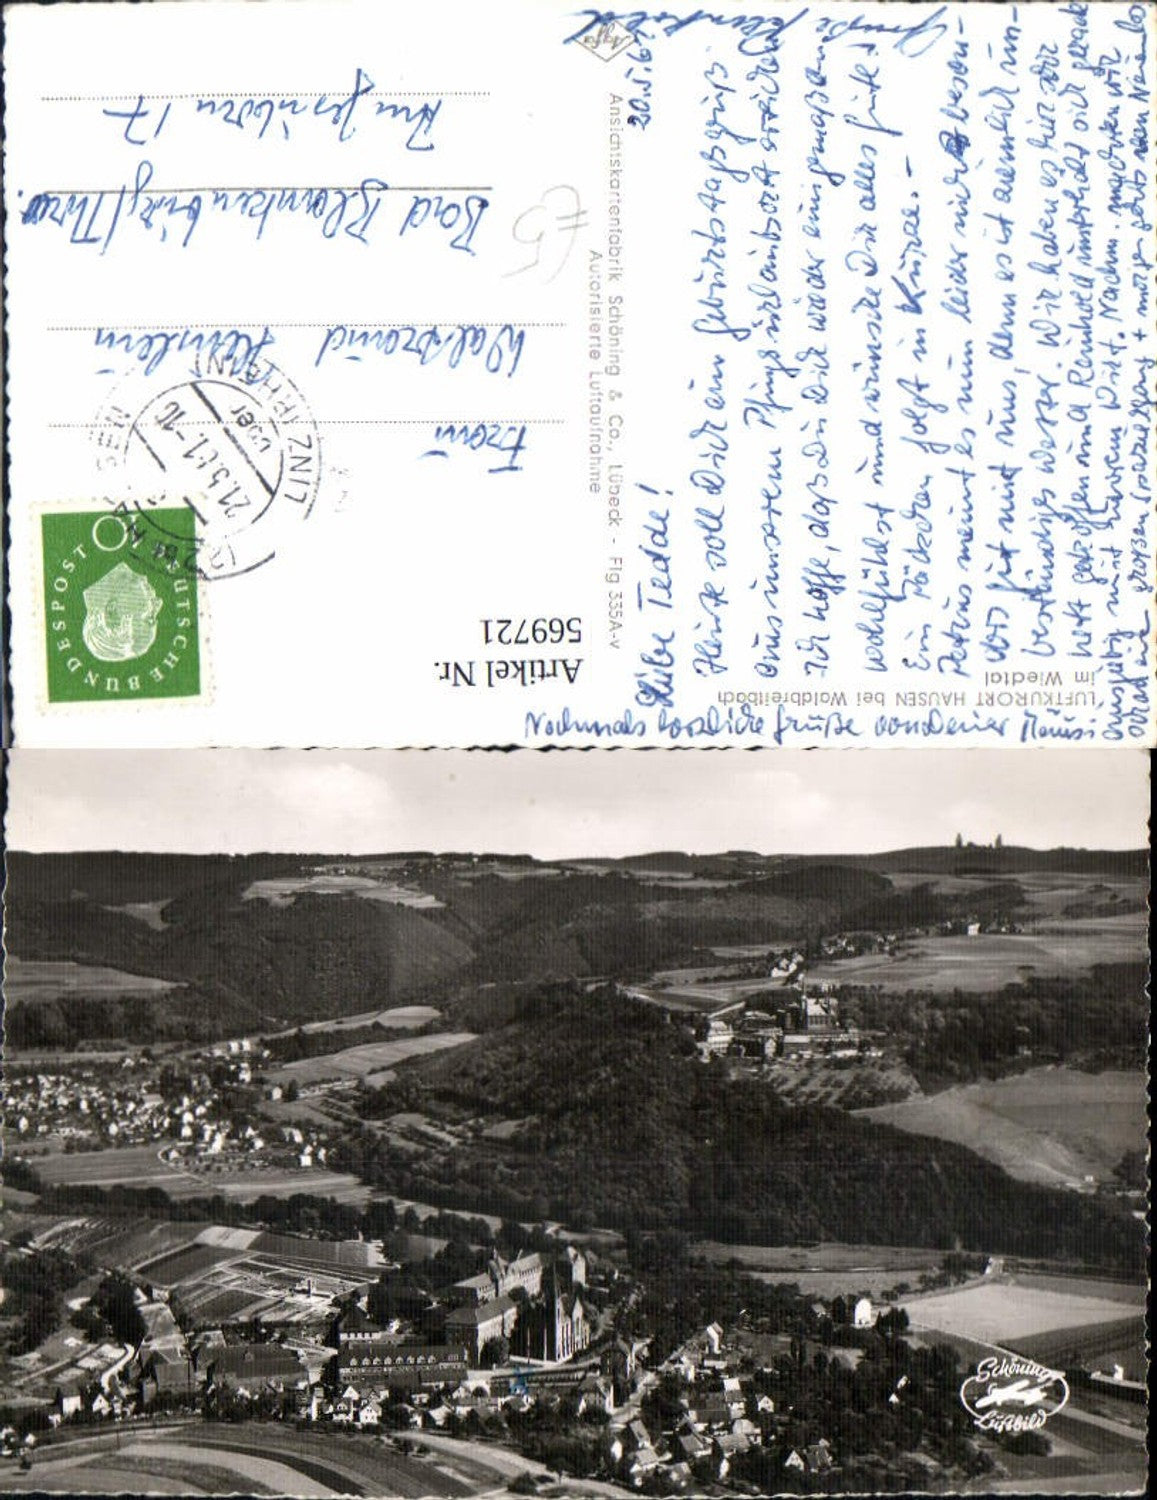 20.5.61
Liebe Tedde!
Heute soll Dich ein Geburtstagsgruß
aus unserem Pfingsturlaubsort erreichen
Ich hoffe, daß Du Dich wieder einigermaßen
wohlfühlst und wünsche Dir alles Gute!
Ein Päckchen folgt in Kürze. –
Petrus meint es nun leider nicht beson-
ders gut mit uns, denn es ist ziemlich un-
beständiges Wetter. Wir haben es hier sehr
nett getroffen und Reinhold unterhält sich gerade
mit Wirt. Nachm. machten wir
einen großen Spaziergang +
Nochmals herzliche Grüße von Deiner Mausi
Grüße Reinhold
Frau
Waltraud
Bad Blankenburg/Thür.
17
LUFTKURORT HAUSEN bei Waldbreitbach
im Wiedtal
Ansichtskartenfabrik Schöning & Co., Lübeck - Flg 335A-v
Autorisierte Luftaufnahme
Agfa
DEUTSCHE BUNDESPOST
10
HAUSEN
über
LINZ (RHEIN)
21.5.61.-10
Artikel Nr.
569721
Schöning
Luftbild